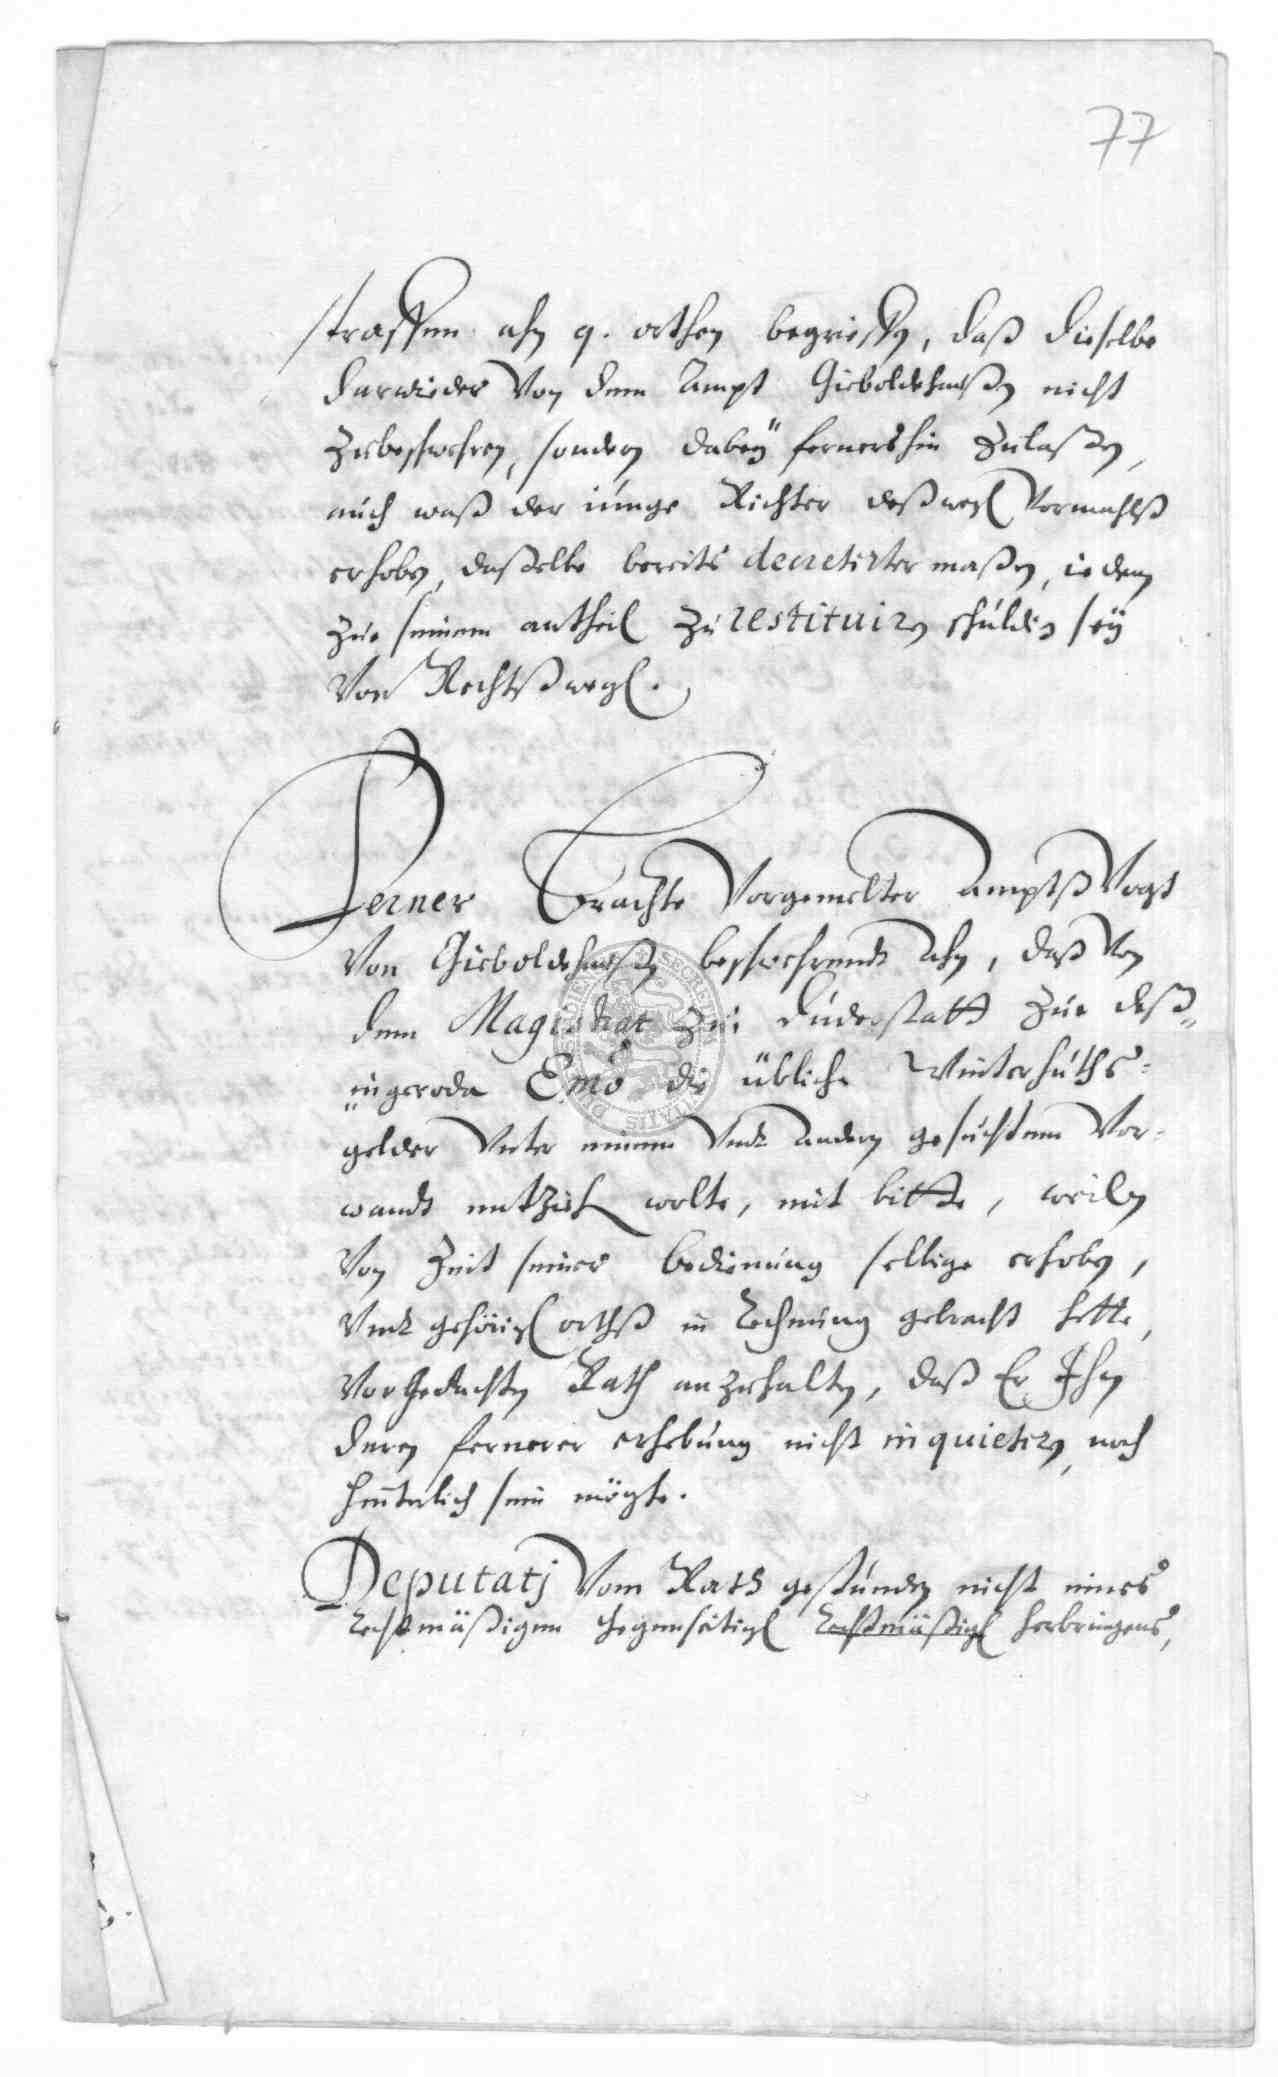 77
strassen ahn q. orthen begrieffen, daß dieselbe
darwieder Von dem Ampt Gieboldehaußen nicht
Zubeschwehren, sondern dabeÿ fernershin Zulaßen,
auch waß der iunge Richter deßwegen Vormahlß
erhoben, daßelbe bereits decretirter maßen, iedem
Zue seinem antheil Zu restituiren schuldig seÿ
Von Rechtßwegen.
Ferner Brachte Vorgemelter AmptßVogt
Von Gieboldehaußen beschwehrendt Ahn, daß Von
dem Magistrat Zu Duderstatt Zue deß„
„ingeroda Emo die übliche Winterhuths=
gelder Unter einem Undt andern gesuchtem Vor=
wandt entziehen wolte, mit bitte, weilen
Von Zeit seiner bedienung selbige erhoben,
Undt gehörigen orthß in Rechnung gebracht hette,
Vorgedachten Rath anzuhalten, daß Er Ihn
deren fernerer erhebung nicht inquietiren, noch
hinterlich sein mögte.
Deputatj Vom Rath gestunden nicht eines
rechtmäßigen gegenseitigen rechtmäßigen herbringens,